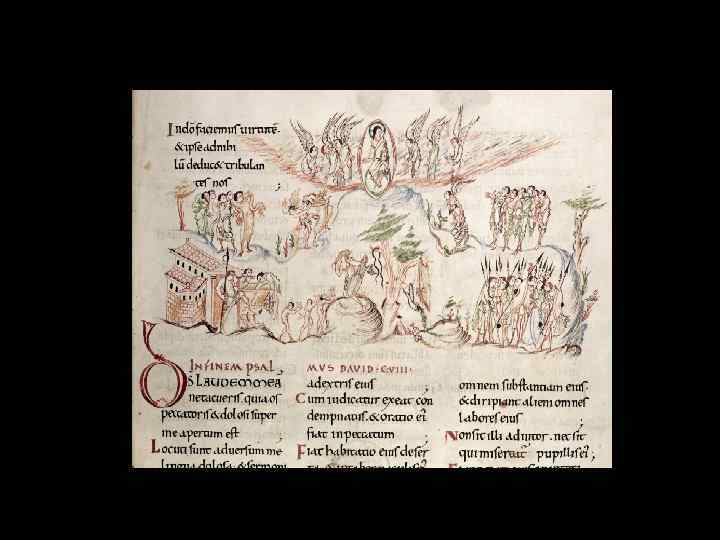 In dō faciemus uirtutē·
& ipse adnihi
lū deduc& tribulan
tes nos ;
IN FINEM PSAL
MUS DAVID· C·VIII·
DS LAUDEM MEA
netacueris. quia os
peccatoris & dolosi super
me apertum est ;
Locuti sunt aduersum me
lingua dolosa & sermoni
a dextris eius ;
Cum iudicatur exeat con
demnatus. & oratio ei
fiat in peccatum ;
Fiat habitatio eius deser
omnem substantiam eius·
& diripiant alieni omnes
labores eius ;
Non sit illi adiutor. nec sit
qui misereat pupillis ei ;